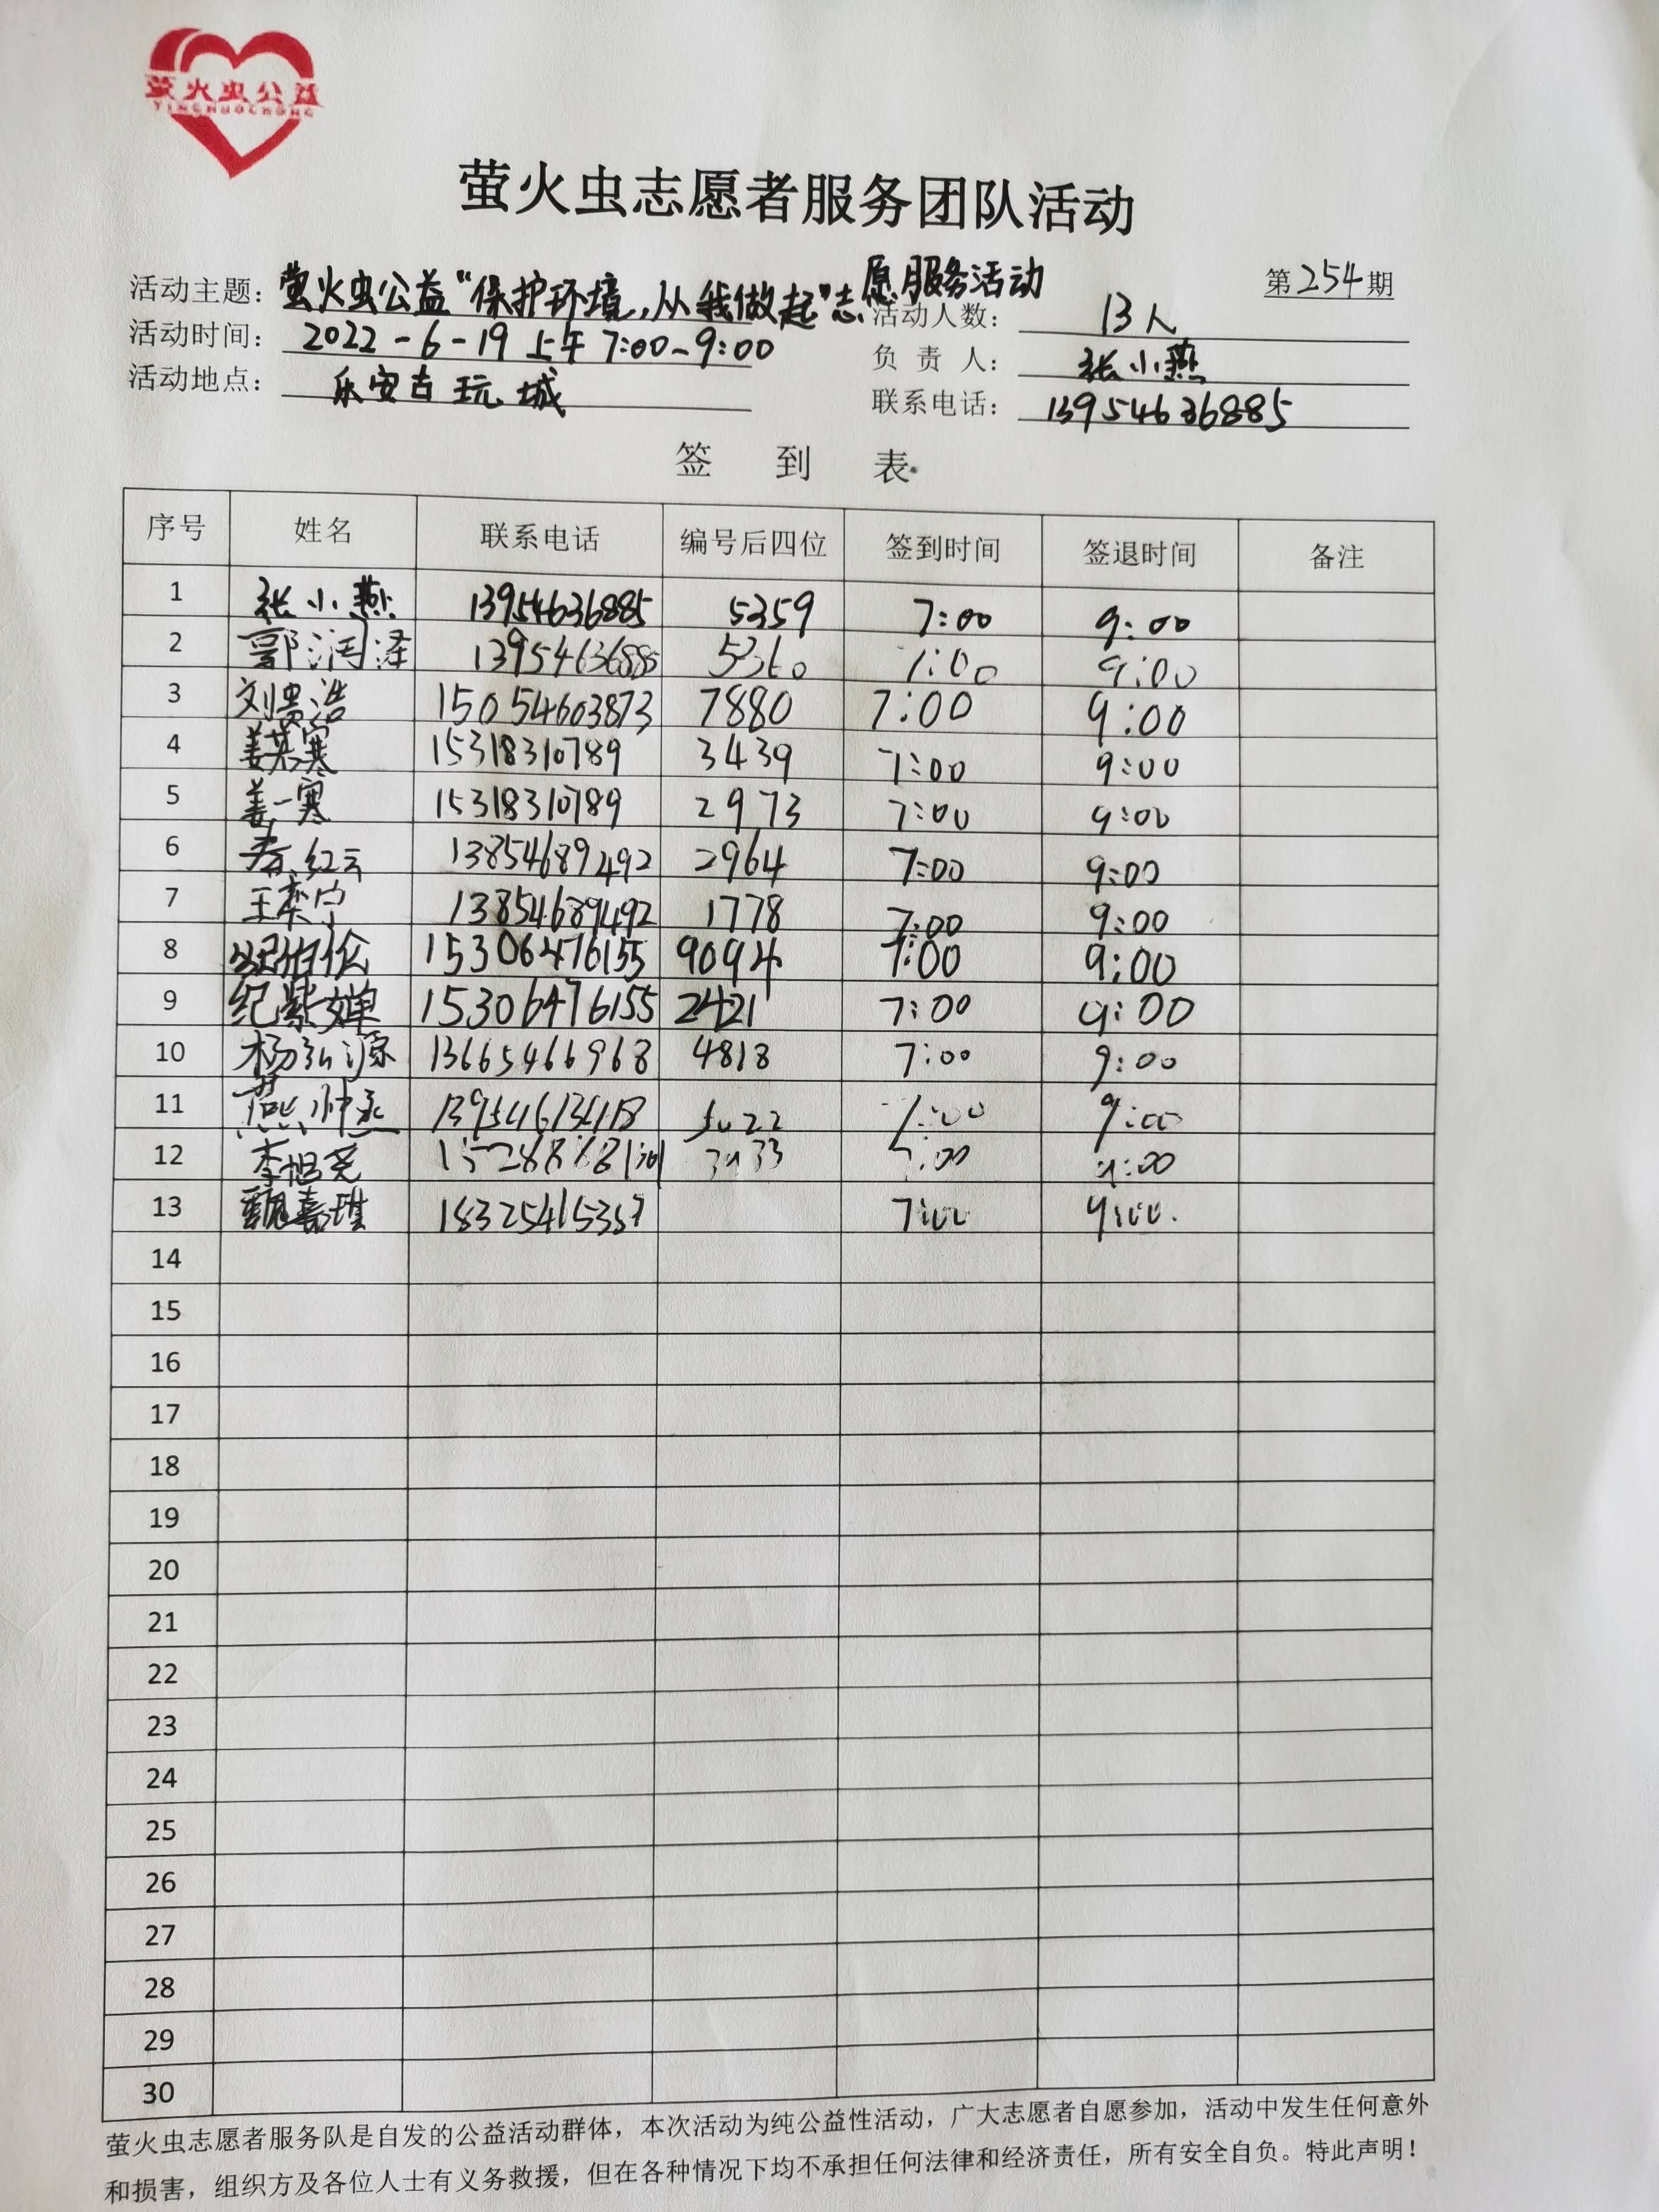 萤火虫公益
YINGHUOCHONG
萤火虫志愿者服务团队活动
第254期
活动主题：萤火虫公益“保护环境，从我做起”志愿服务活动
活动时间：2022-6-19上午7:00-9:00 活动人数：13人
活动地点：乐安古玩城 负责人：张小燕
联系电话：13954636885
签到表
序号 姓名 联系电话 编号后四位 签到时间 签退时间 备注
1 张小燕 13954636885 5359 7:00 9:00
2 郭润泽 13954636885 5360 7:00 9:00
3 刘贵浩 15054603873 7880 7:00 9:00
4 姜若寒 15318310789 3439 7:00 9:00
5 姜一寒 15318310789 2973 7:00 9:00
6 红云 13854689492 2964 7:00 9:00
7 王栾宁 13854689492 1778 7:00 9:00
8 伯伦 15306476155 9094 7:00 9:00
9 纪紫婵 15306476155 2421 7:00 9:00
10 杨弘源 13665466968 4818 7:00 9:00
11 燕 7:00 9:00
12 李旭尧 7:00 9:00
13 魏嘉琪 7:00 9:00
14
15
16
17
18
19
20
21
22
23
24
25
26
27
28
29
30
萤火虫志愿者服务队是自发的公益活动群体，本次活动为纯公益性活动，广大志愿者自愿参加，活动中发生任何意外
和损害，组织方及各位人士有义务救援，但在各种情况下均不承担任何法律和经济责任，所有安全自负。特此声明！